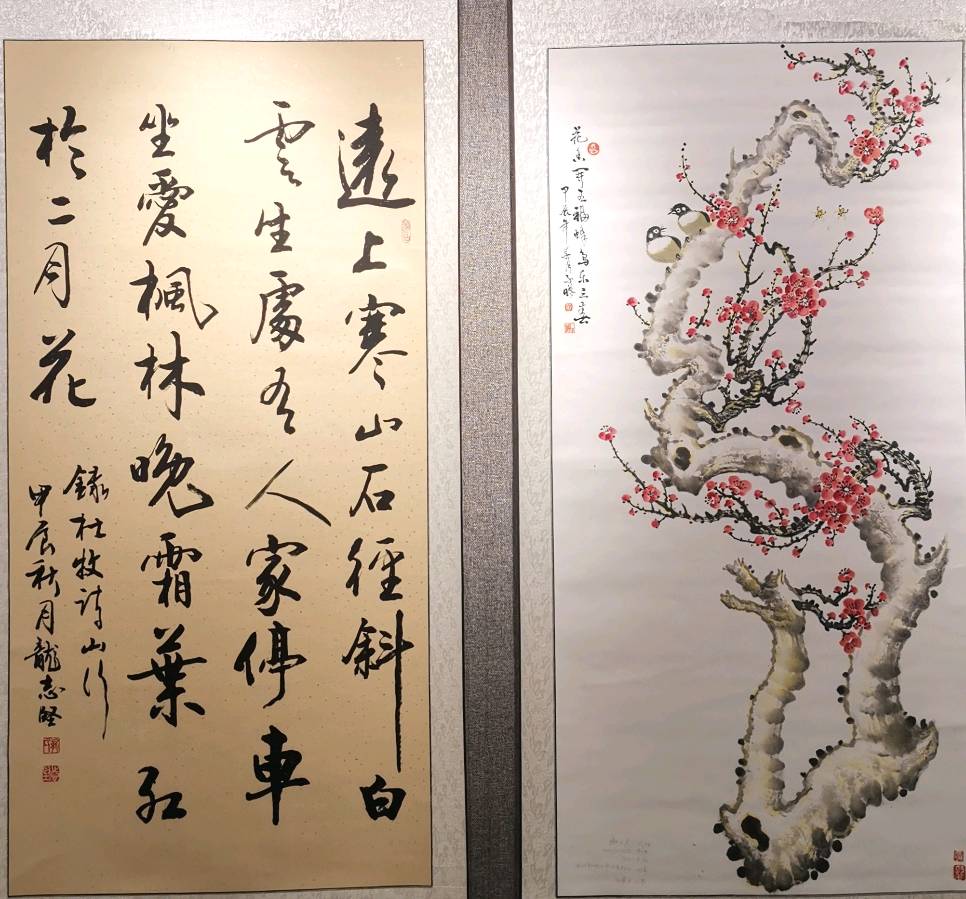 遠上寒山石徑斜白
雲生處有人家停車
坐愛楓林晚霜葉紅
於二月花
錄杜牧詩山行
甲辰秋月龍志堅
花香開五福蜂鳥乐三春
甲辰年